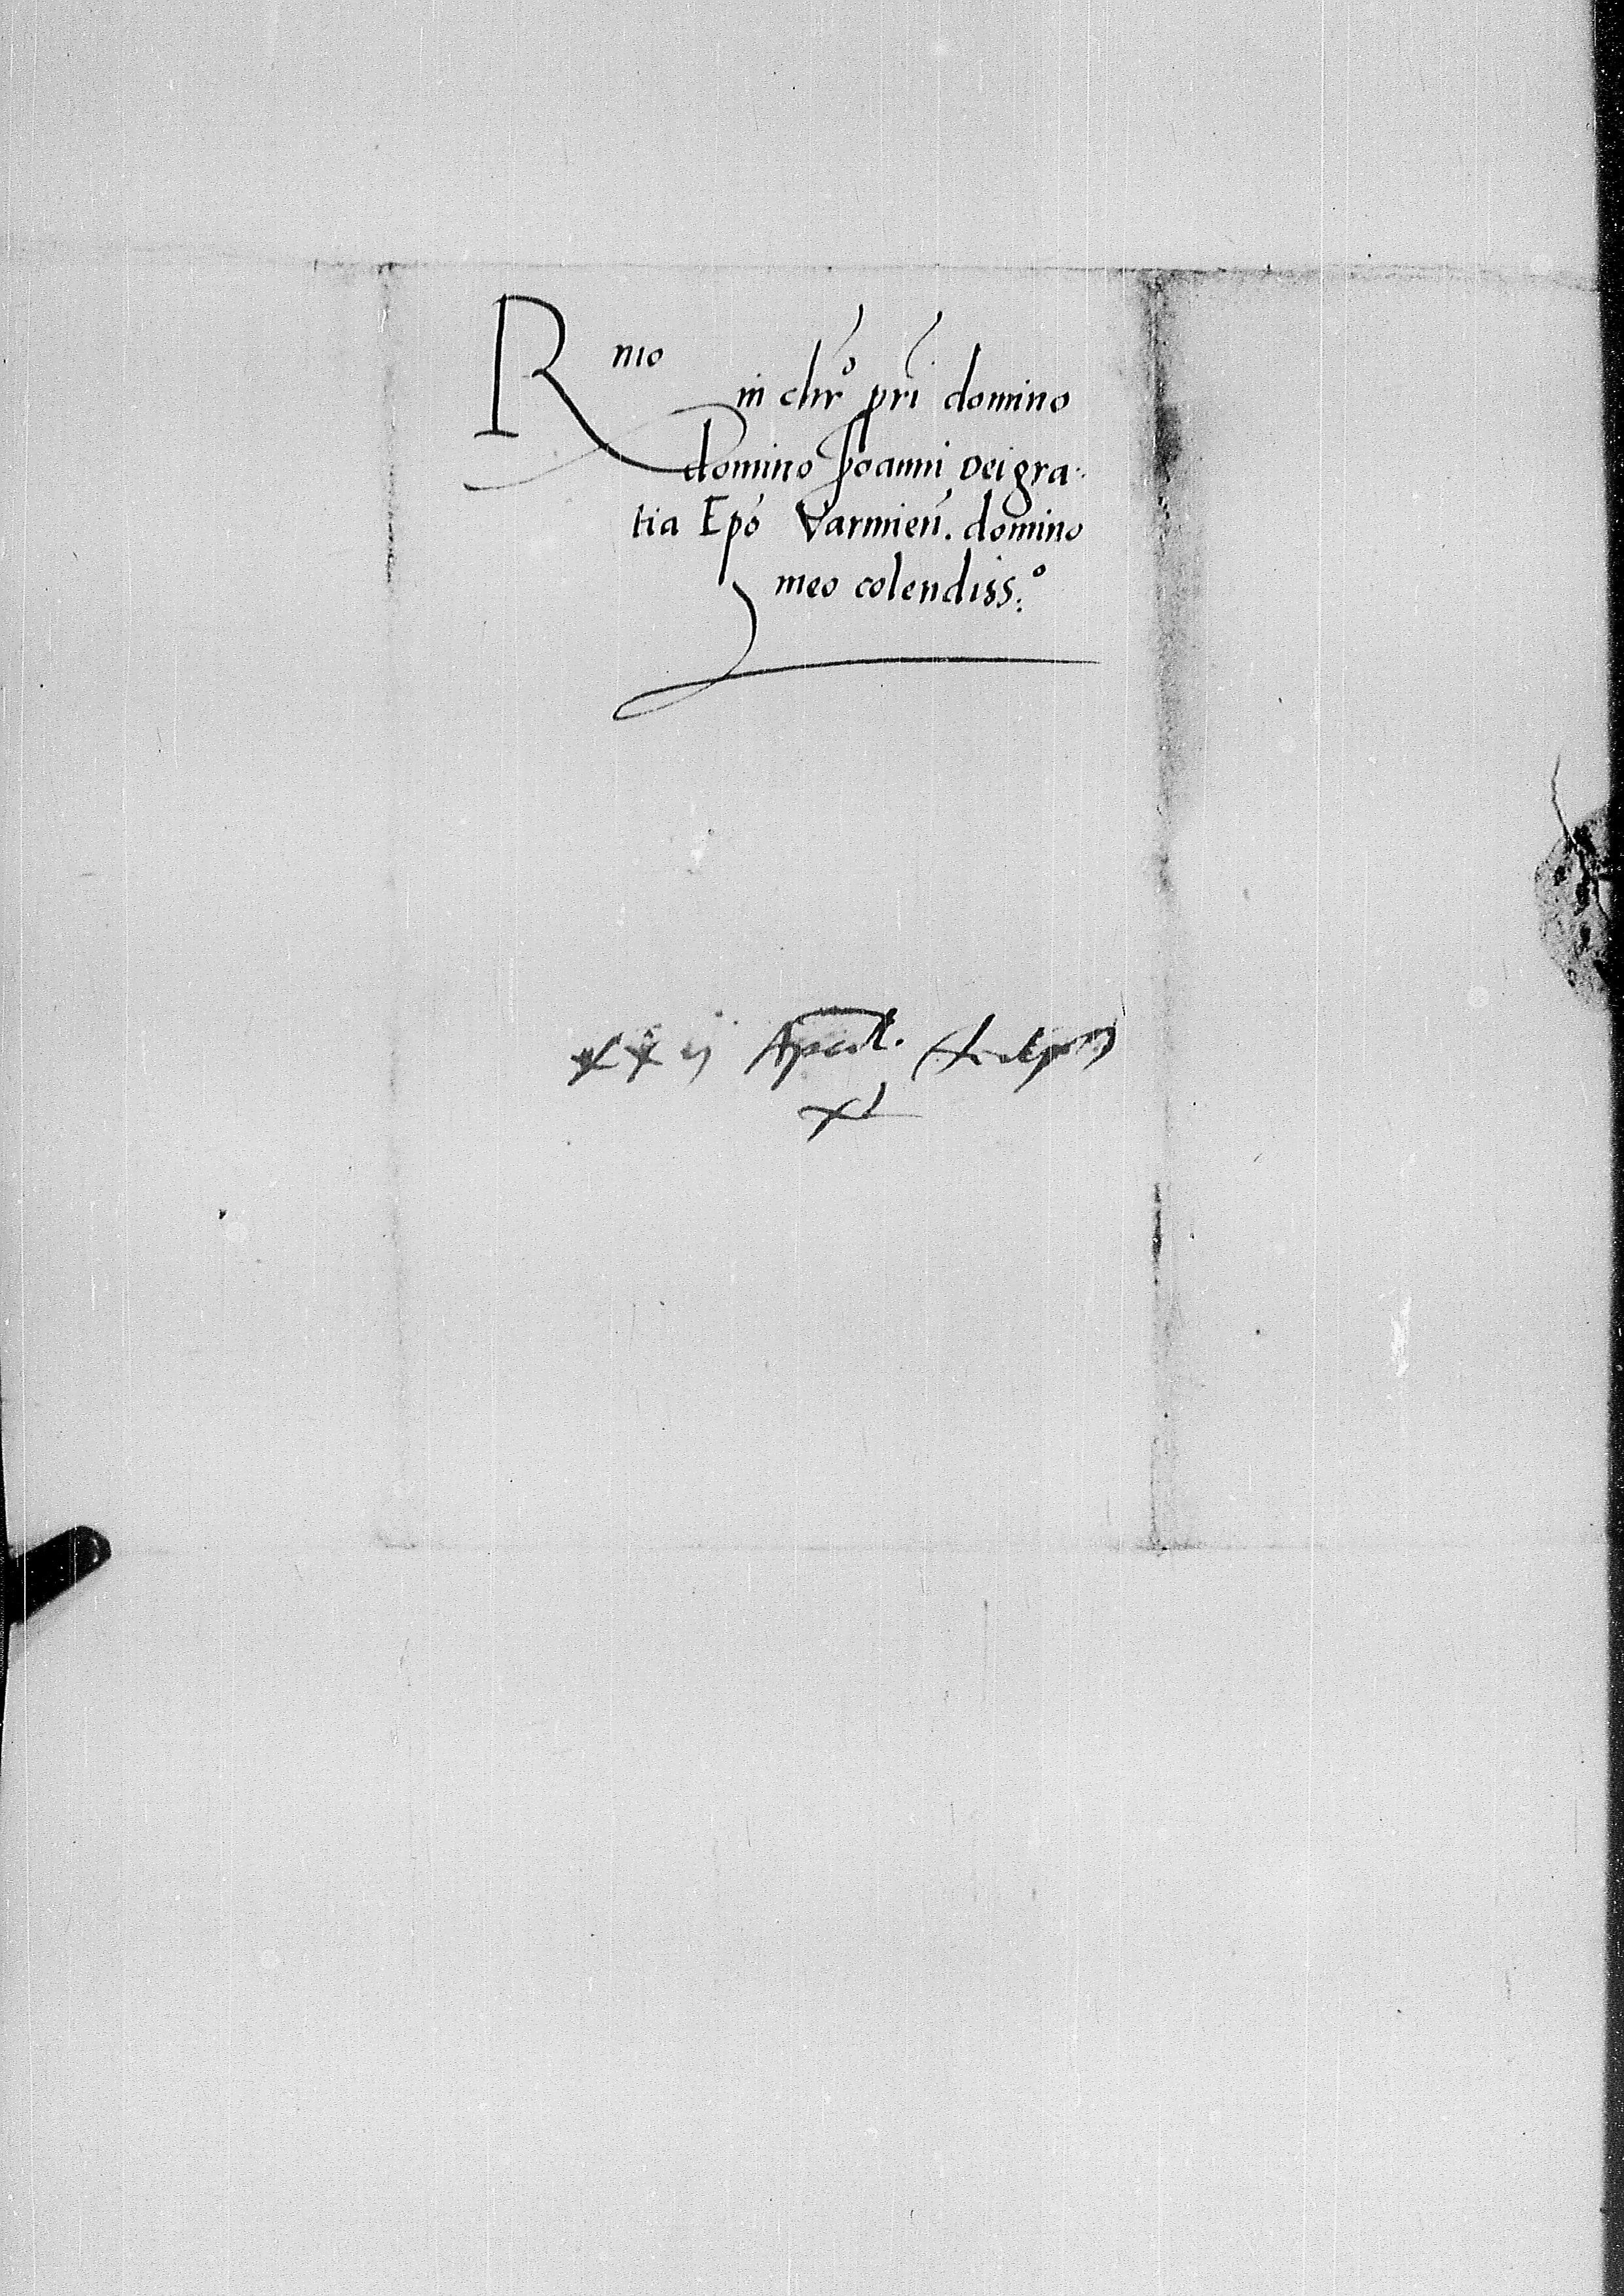 Rmo
in chr̄o pri domino
domino Joanni Dei gra-
tia Epo Varmień. domino
meo colendiss:o
xxij April.
xl